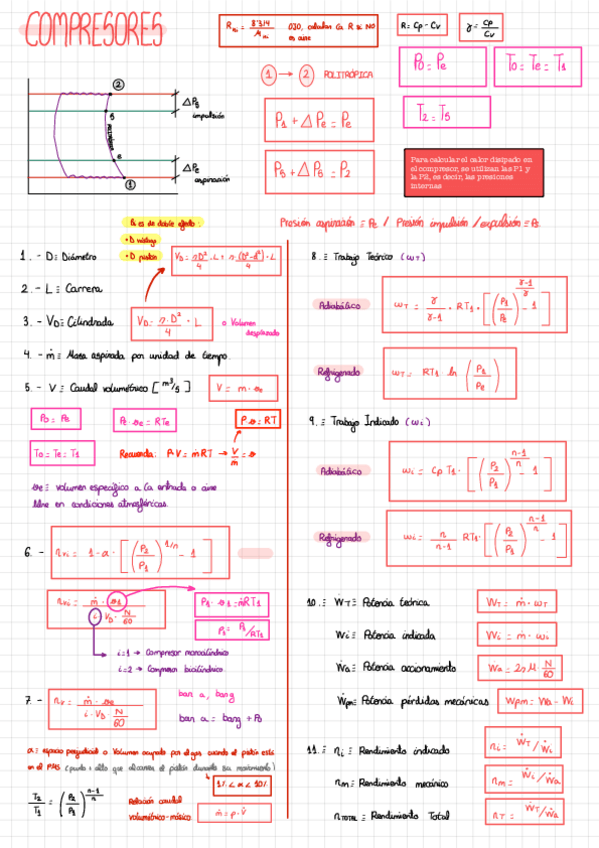 COMPRESORES
R = Cp - Cv
γ = Cp/Cv
P0 = Pe
T0 = Te = T1
T2 = T5
1 → 2 POLITRÓPICA
P1 + ΔPe = Pe
Ps + ΔPs = P2
ΔPs impulsión
ΔPe aspiración
Para calcular el calor disipado en
el compresor, se utilizan las P1 y
la P2, es decir, las presiones
internas
Si es de doble efecto:
• D vástago
• D pistón
Presión aspiración ≡ Pe / Presión impulsión / expulsión ≡ Ps
1. - D ≡ Diámetro
2. - L ≡ Carrera
3. - VD ≡ Cilindrada
VD = π·D²/4 · L
o Volumen desplazado
4. - ṁ ≡ Masa aspirada por unidad de tiempo.
5. - V ≡ Caudal volumétrico [m³/s]
Pe · ve = RTe
P·v = RT
T0 = Te = T1
Recuerda: P·V = ṁRT → V/ṁ = v
ve ≡ volumen específico a la entrada o aire
libre en condiciones atmosféricas.
6. -
ηvi = 1 - α · [(P2/P1)^1/n - 1]
ηvi = ṁ · v1 / i · VD · N/60
P1 · v1 = ṁRT1
i=1 → Compresor monocilíndrico
i=2 → Compresor bicilíndrico
7. - ηv = ṁ · ve / i · VD · N/60
bar a, bar g
bar a = bar g + P0
α ≡ espacio perjudicial o Volumen ocupado por el gas cuando el pistón está
en el PMS (punto + alto que alcanza el pistón durante su movimiento)
1% < α < 10%
T2/T1 = (P2/P1)^n-1/n
Relación caudal
volumétrico-másico.
ṁ = ρ · V̇
8. ≡ Trabajo Teórico (ωT)
Adiabático
ωT = γ/γ-1 · RT1 · [(Ps/Pe)^γ-1/γ - 1]
Refrigerado
9. ≡ Trabajo Indicado (ωi)
Adiabático
ωi = Cp T1 · [(P2/P1)^n-1/n - 1]
Refrigerado
ωi = n/n-1 · RT1 · [(P2/P1)^n-1/n - 1]
10. ≡ ẆT ≡ Potencia teórica
ẆT = ṁ · ωT
Ẇi ≡ Potencia indicada
Ẇi = ṁ · ωi
Ẇa ≡ Potencia accionamiento
Ẇa = 2πM · N/60
Ẇpm ≡ Potencia pérdidas mecánicas
Ẇpm = Ẇa - Ẇi
11. ≡ ηi ≡ Rendimiento indicado
ηi = ẆT/Ẇi
ηm ≡ Rendimiento mecánico
ηm = Ẇi/Ẇa
ηTOTAL ≡ Rendimiento Total
ηT = ẆT/Ẇa